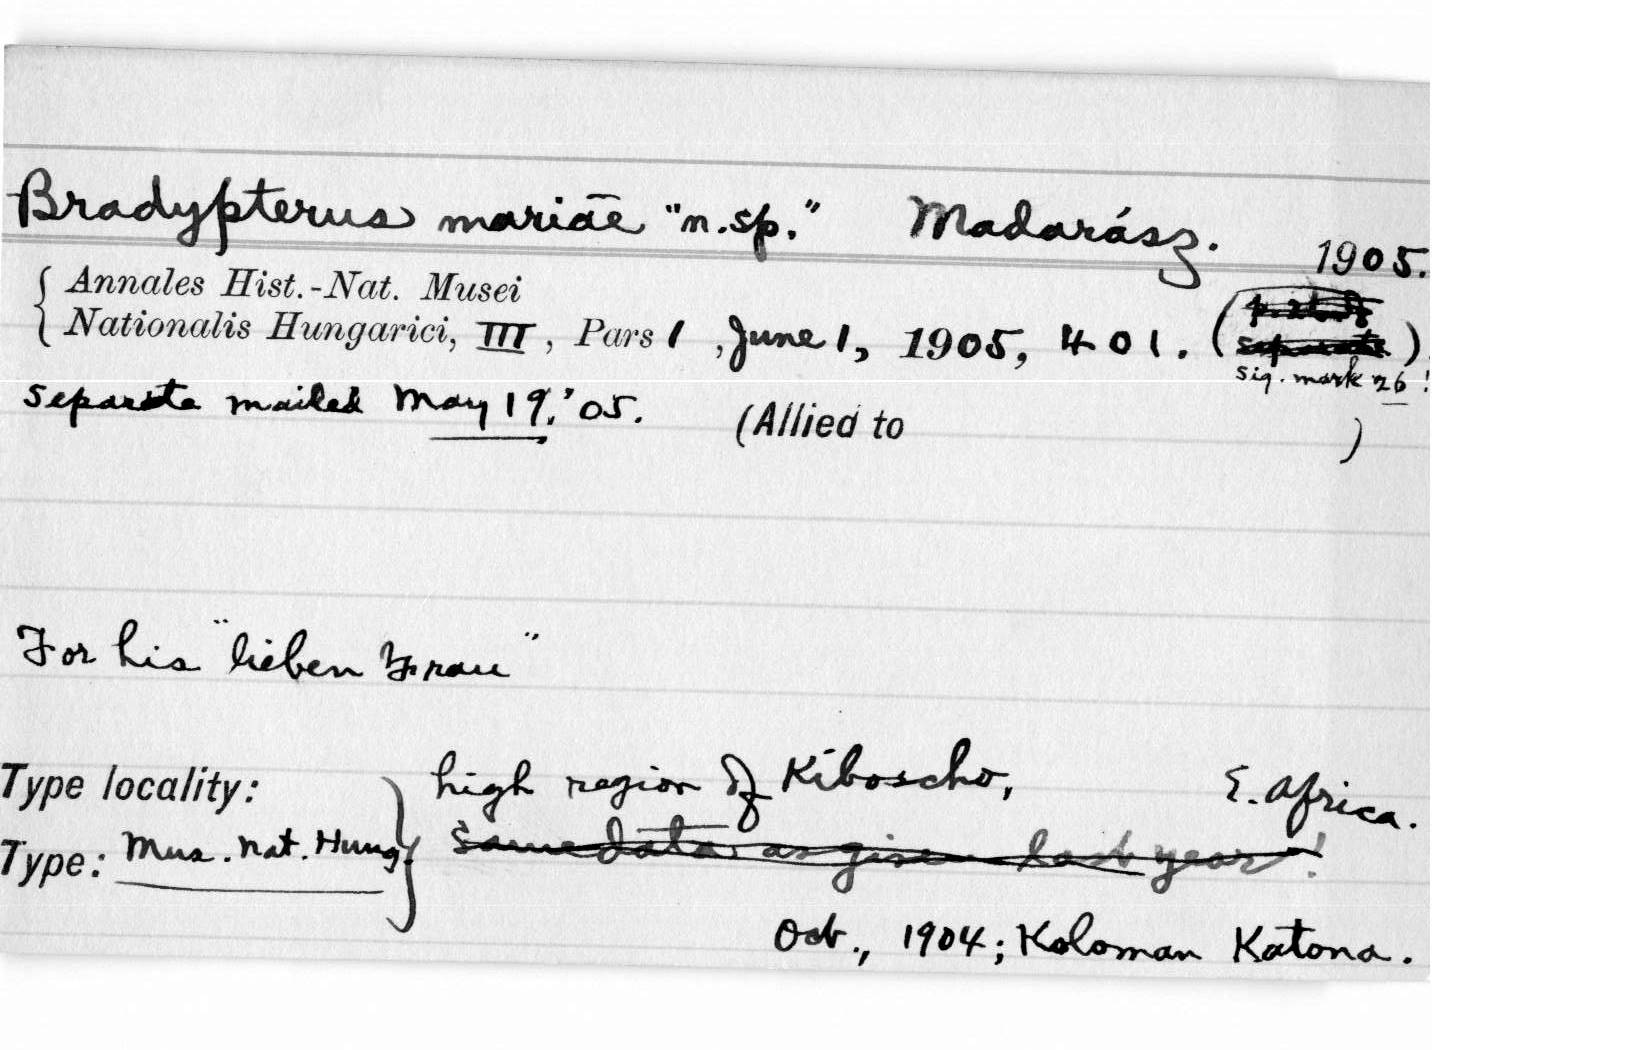 Bradypterus mariae "n.sp." Madarász. 1905.
Annales Hist.-Nat. Musei
Nationalis Hungarici, III, Pars 1, June 1, 1905, 401. (separate)
sig. mark 26!
separata mailed May 19, '05. (Allied to )
For his "lieben Frau"
Type locality: high region of Kiboscho, E. Africa.
Type: Mus. Nat. Hung. Same data as given last year!
Oct., 1904; Koloman Katona.